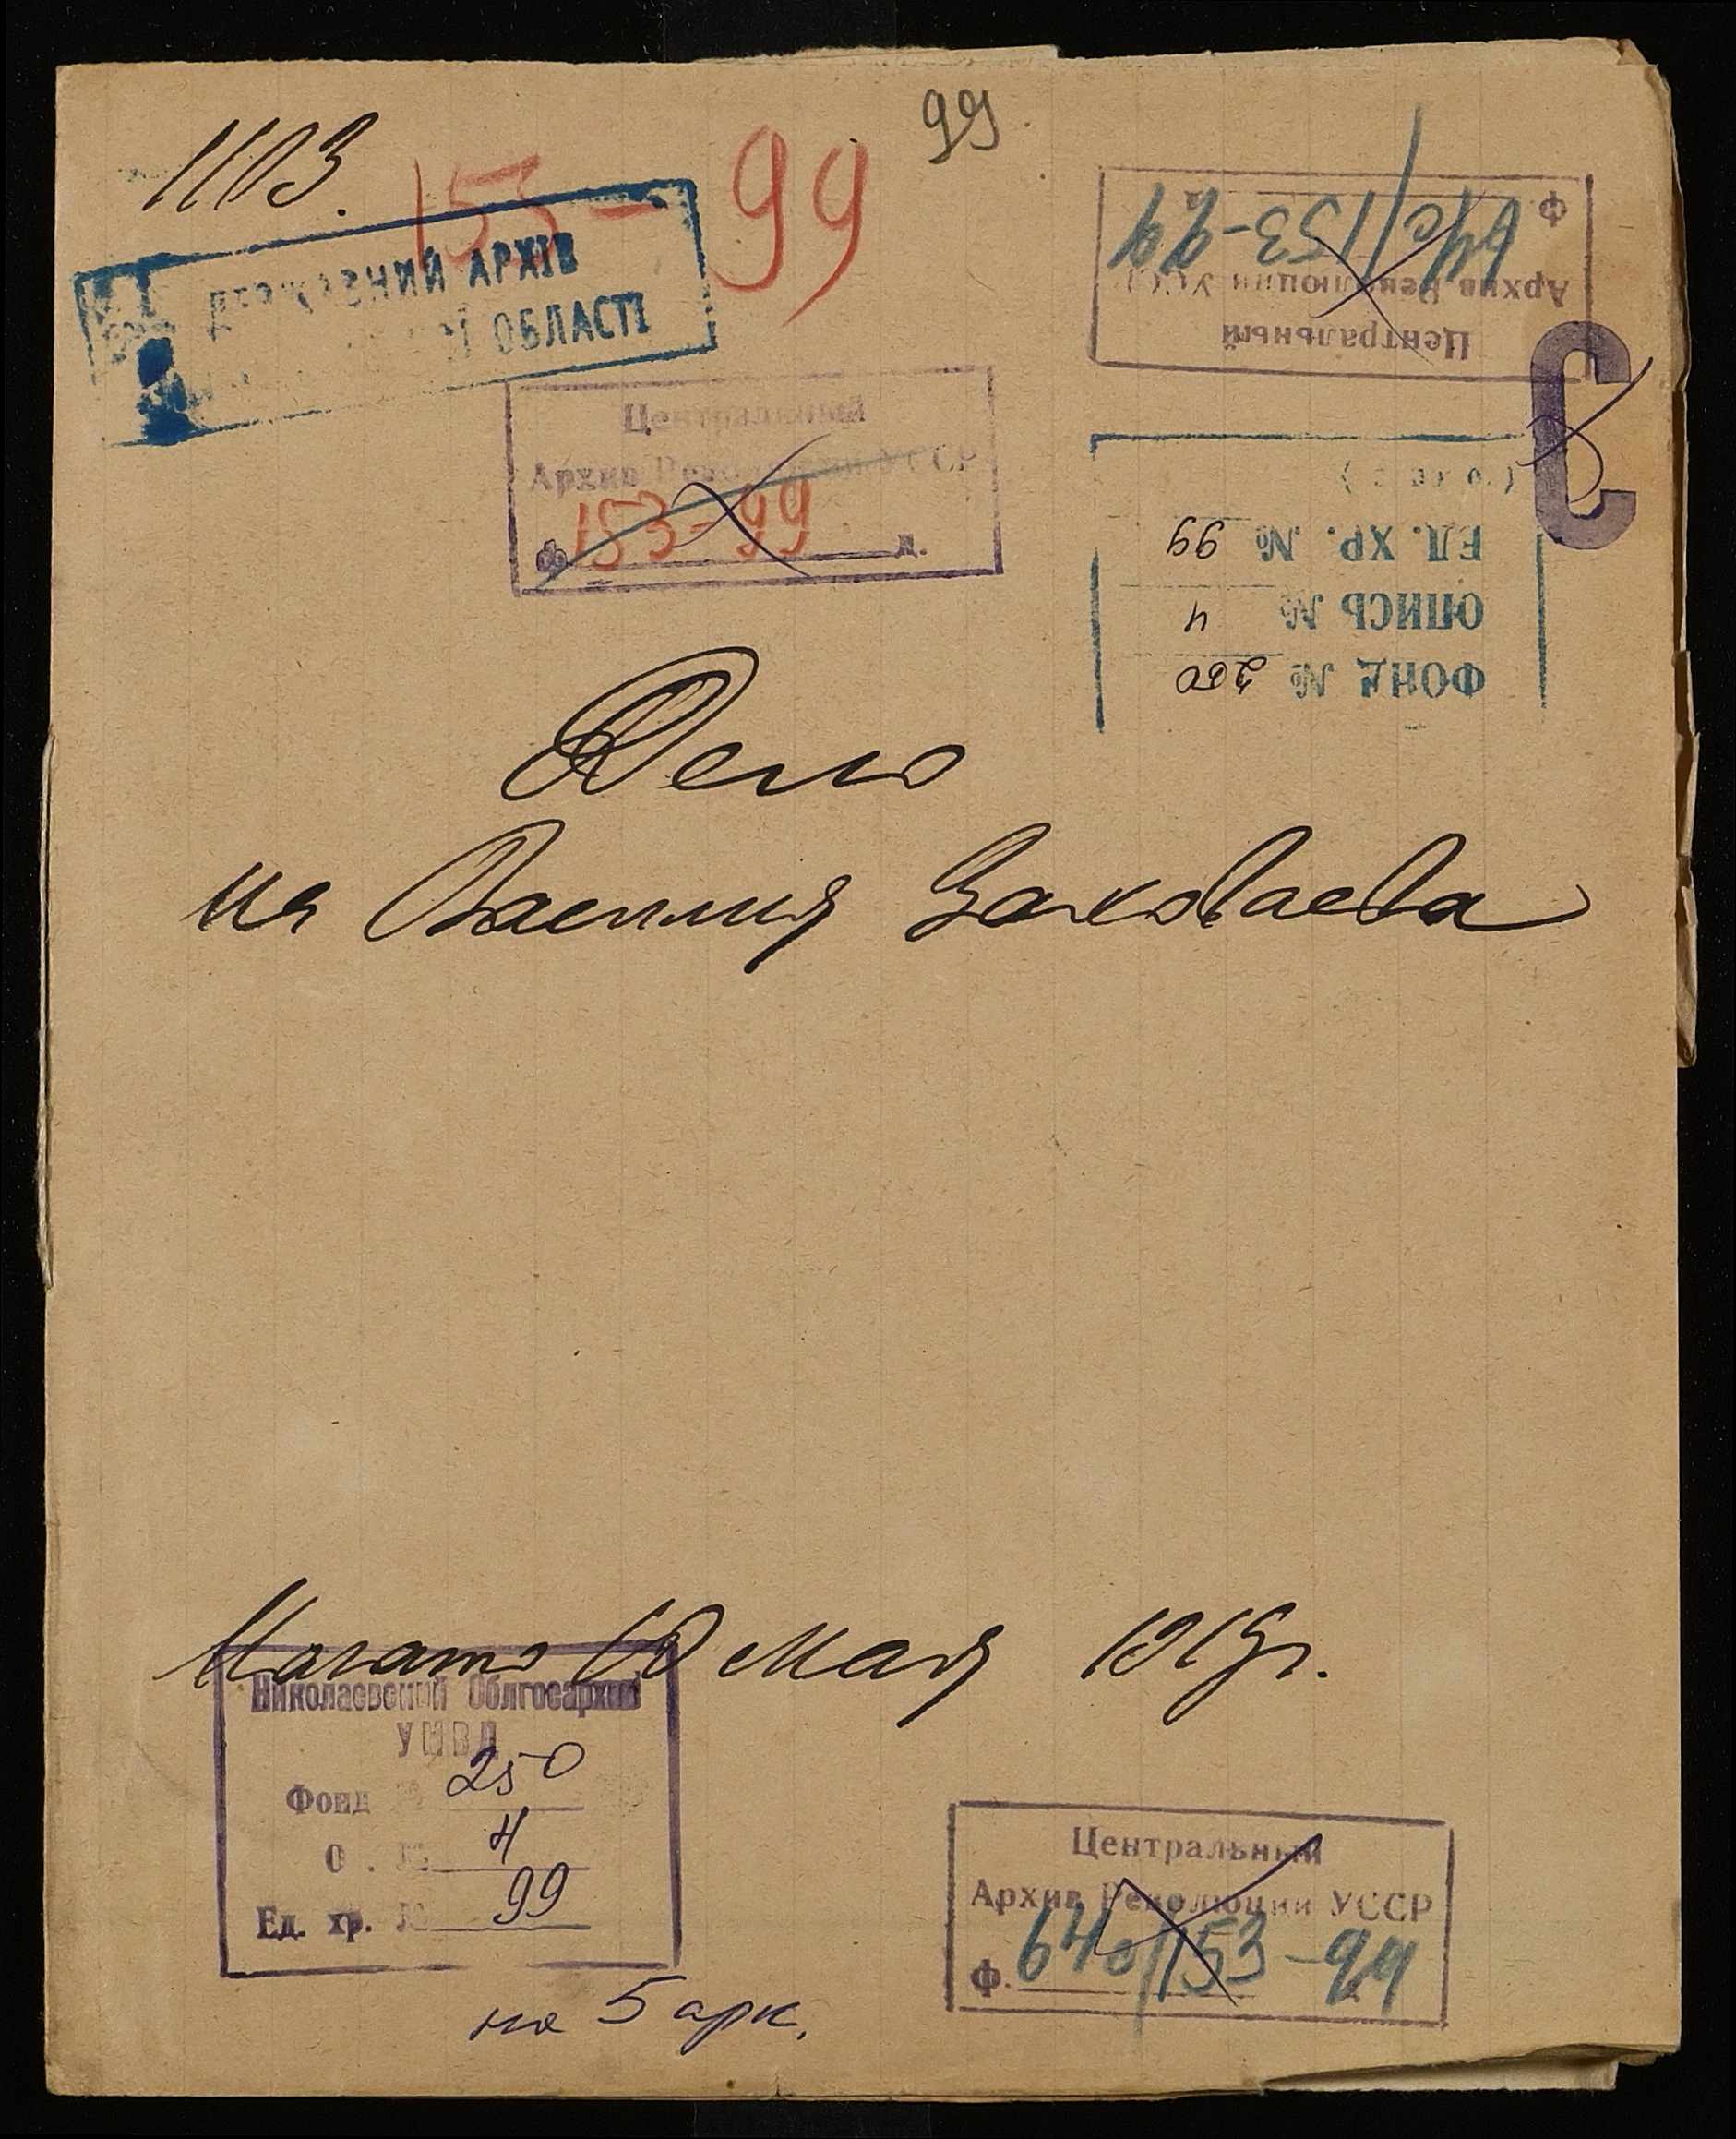 1103.
99
153-99
ДЕРЖАВНИЙ АРХІВ
ОБЛАСТІ
Центральный
Архив Революции УССР
Ф. 64с/153-99
Центральный
Архив Революции УССР
ф. 153-99 д.
С
ФОНД № 250
ОПИСЬ № 4
ЕД. ХР. № 99
Дело
на Василия
Начато 10 мая 1919г.
Николаевский Облгосархив
УМВД
Фонд № 250
О . № 4
Ед. хр. № 99
на 5 арк.
Центральный
Архив Революции УССР
ф. 64с/153-99